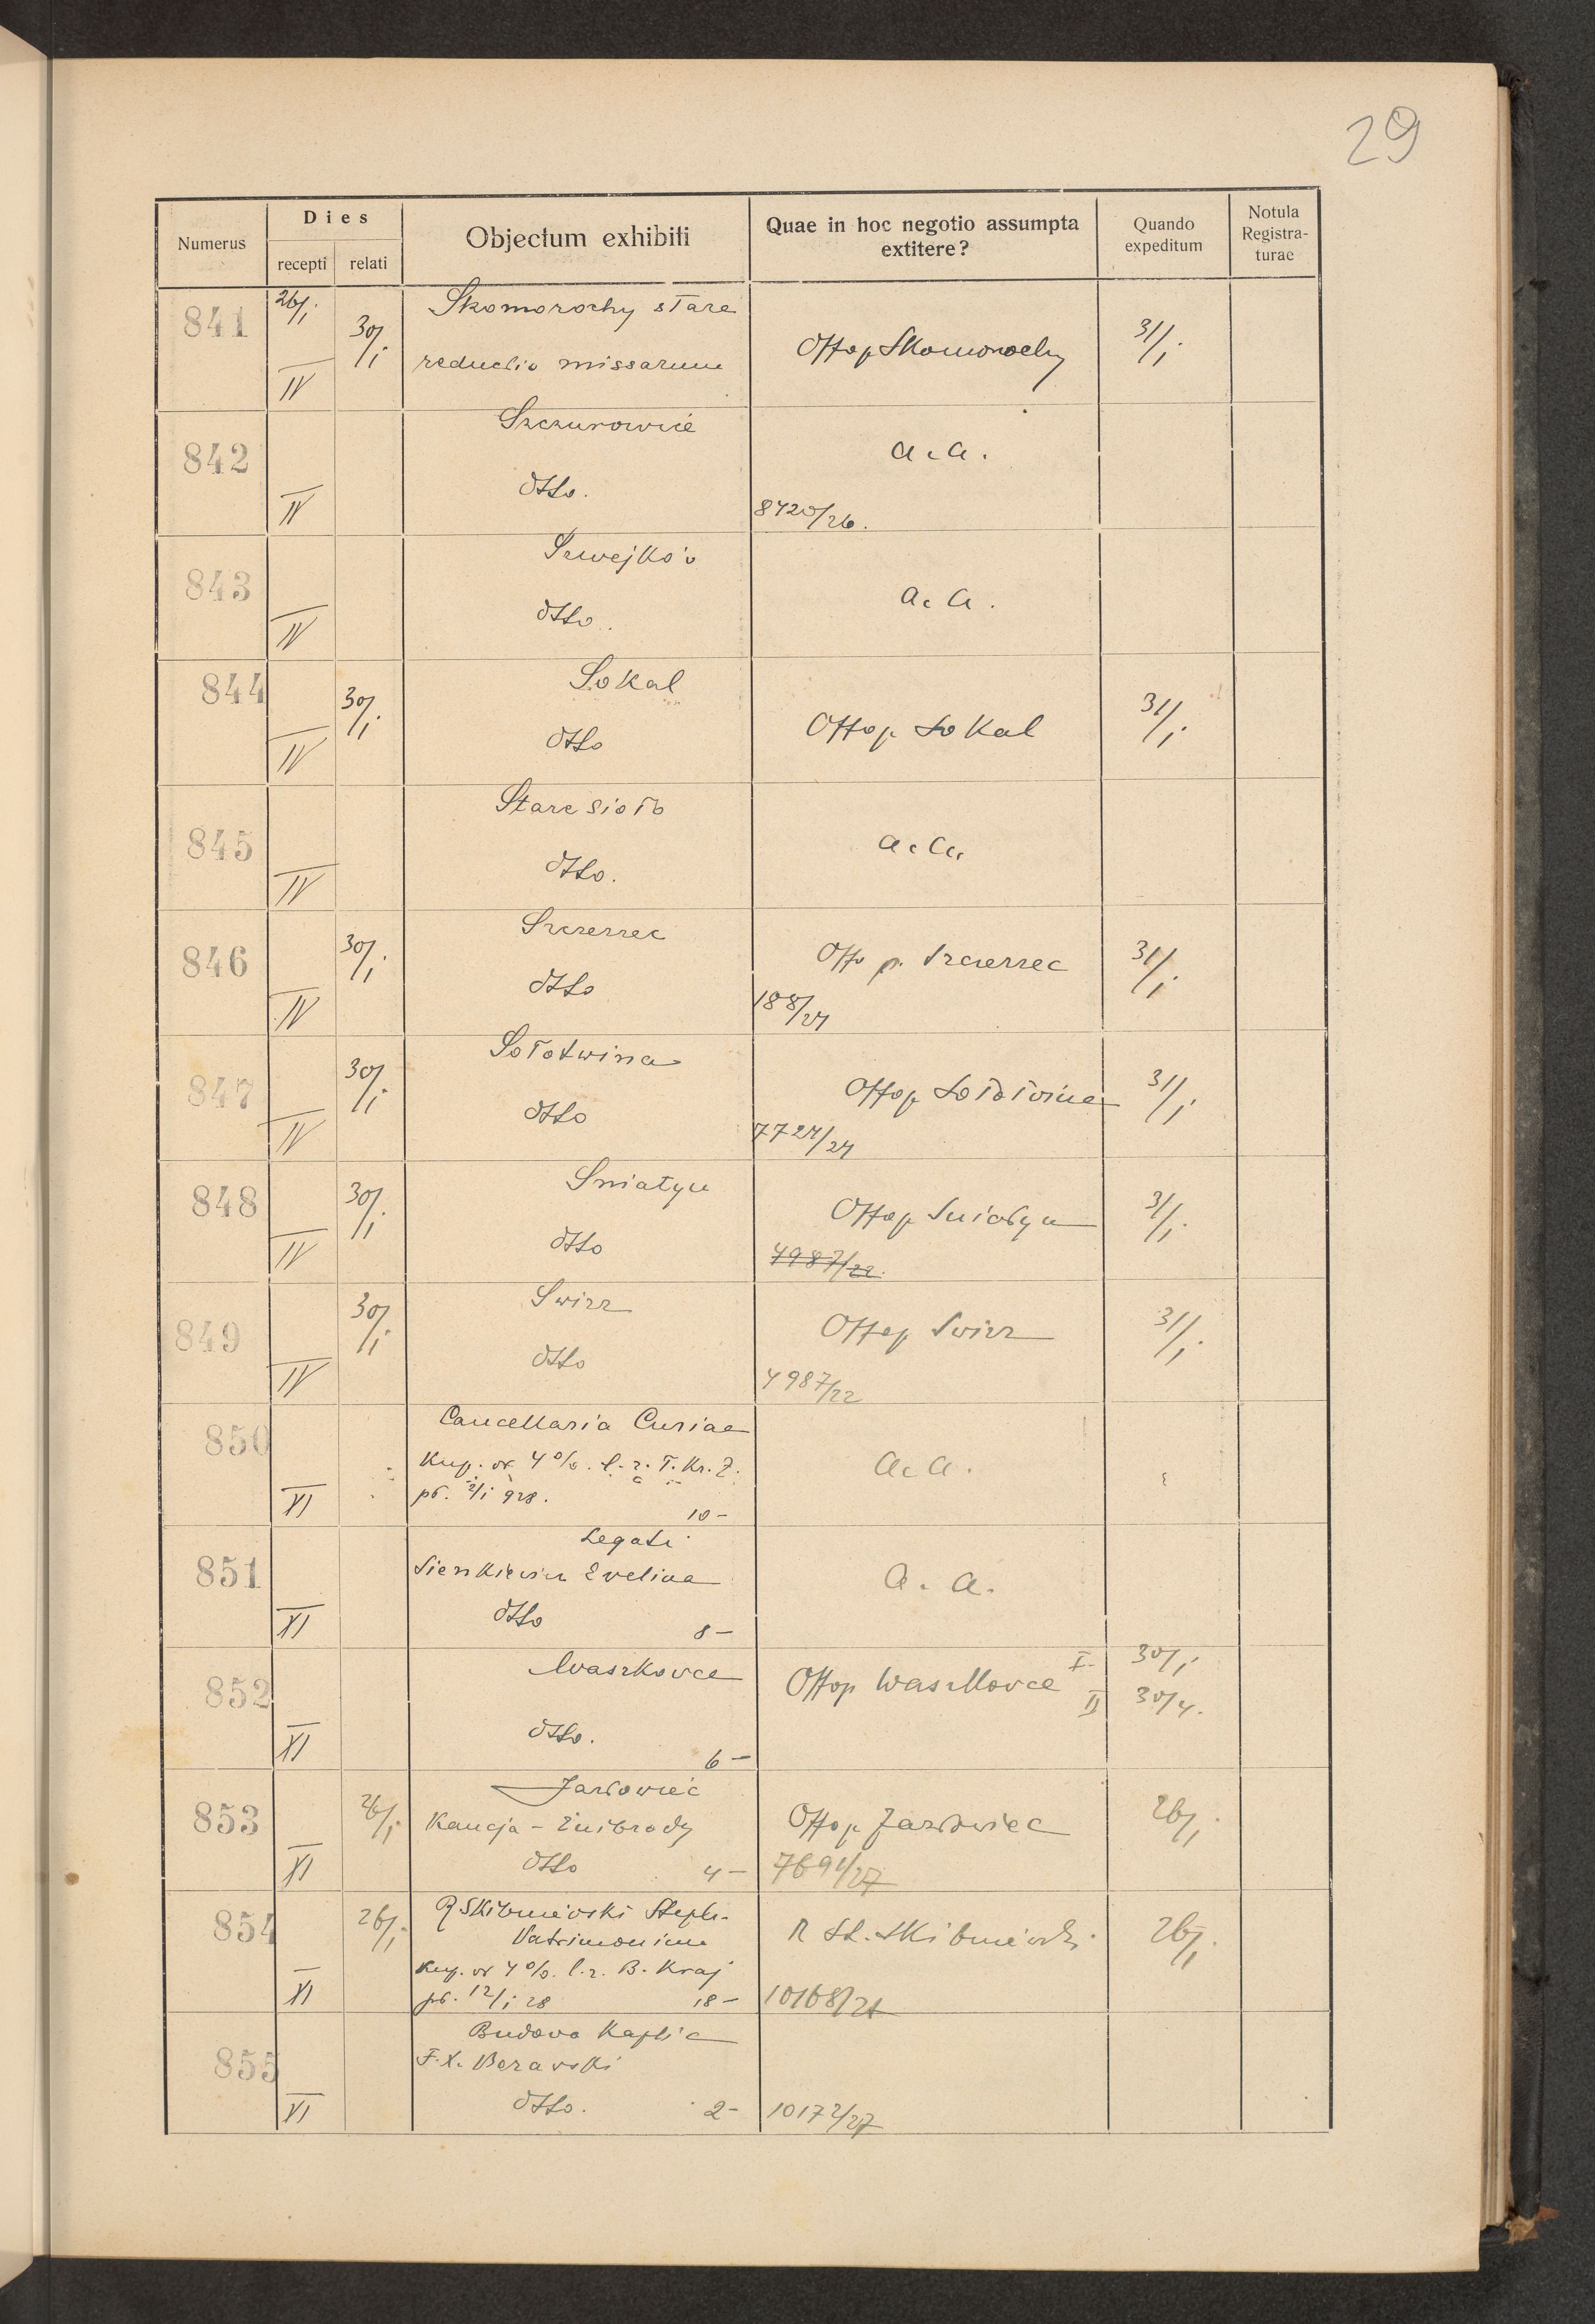 29
Numerus
Dies
recepti relati
Objectum exhibiti
Quae in hoc negotio assumpta
extitere?
Quando
expeditum
Notula
Registra-
turae
841 26/I IV 30/I Skomorochy stare
reductio missarum
Offop Skomorochy 31/I
842 IV Szczurowice
dtto.
a.a.
8420/26.
843 IV Szwejków
dtto.
a.a.
844 IV 30/I Sokal
dtto
Offop Sokal 31/I
845 IV Staresioło
dtto.
a.a.
846 IV 30/I Szczerzec
dtto
Offo p. Szczerzec 31/I
188/24
847 IV 30/I Sołotwina
dtto
Offop Sołotwina 31/I
7724/24
848 IV 30/I Sniatyn
dtto
Offop Sniatyn 31/I
4987/22.
849 IV 30/I Swirz
dtto
Offop Swirz 31/I
4987/22
850 XI Cancellaria Curiae
Kup. od 4% l. z. T. Kr. Z.
pł. 2/I 928.
10 –
a.a.
851 XI Legati
Sienkiewicz Evelina
dtto 8 –
a. a.
852 XI Waszkovce
dtto.
6 –
Offop Waszkovce I. 30/I
II 30/4.
853 XI 26/I Jazłowiec
Kaucja – Żnibrody
dtto 4 –
Offop Jazłowiec 26/I
7691/27
854 XI 26/I R Skibniewski Steph.
Patrimonium
Kup. od 4% l. z. B. Kraj
pł. 12/I 28 18 –
R St. Skibniewski 26/I
10168/21
855 XI Budova Kaplic
F. X.
dtto. 2 –
10172/27